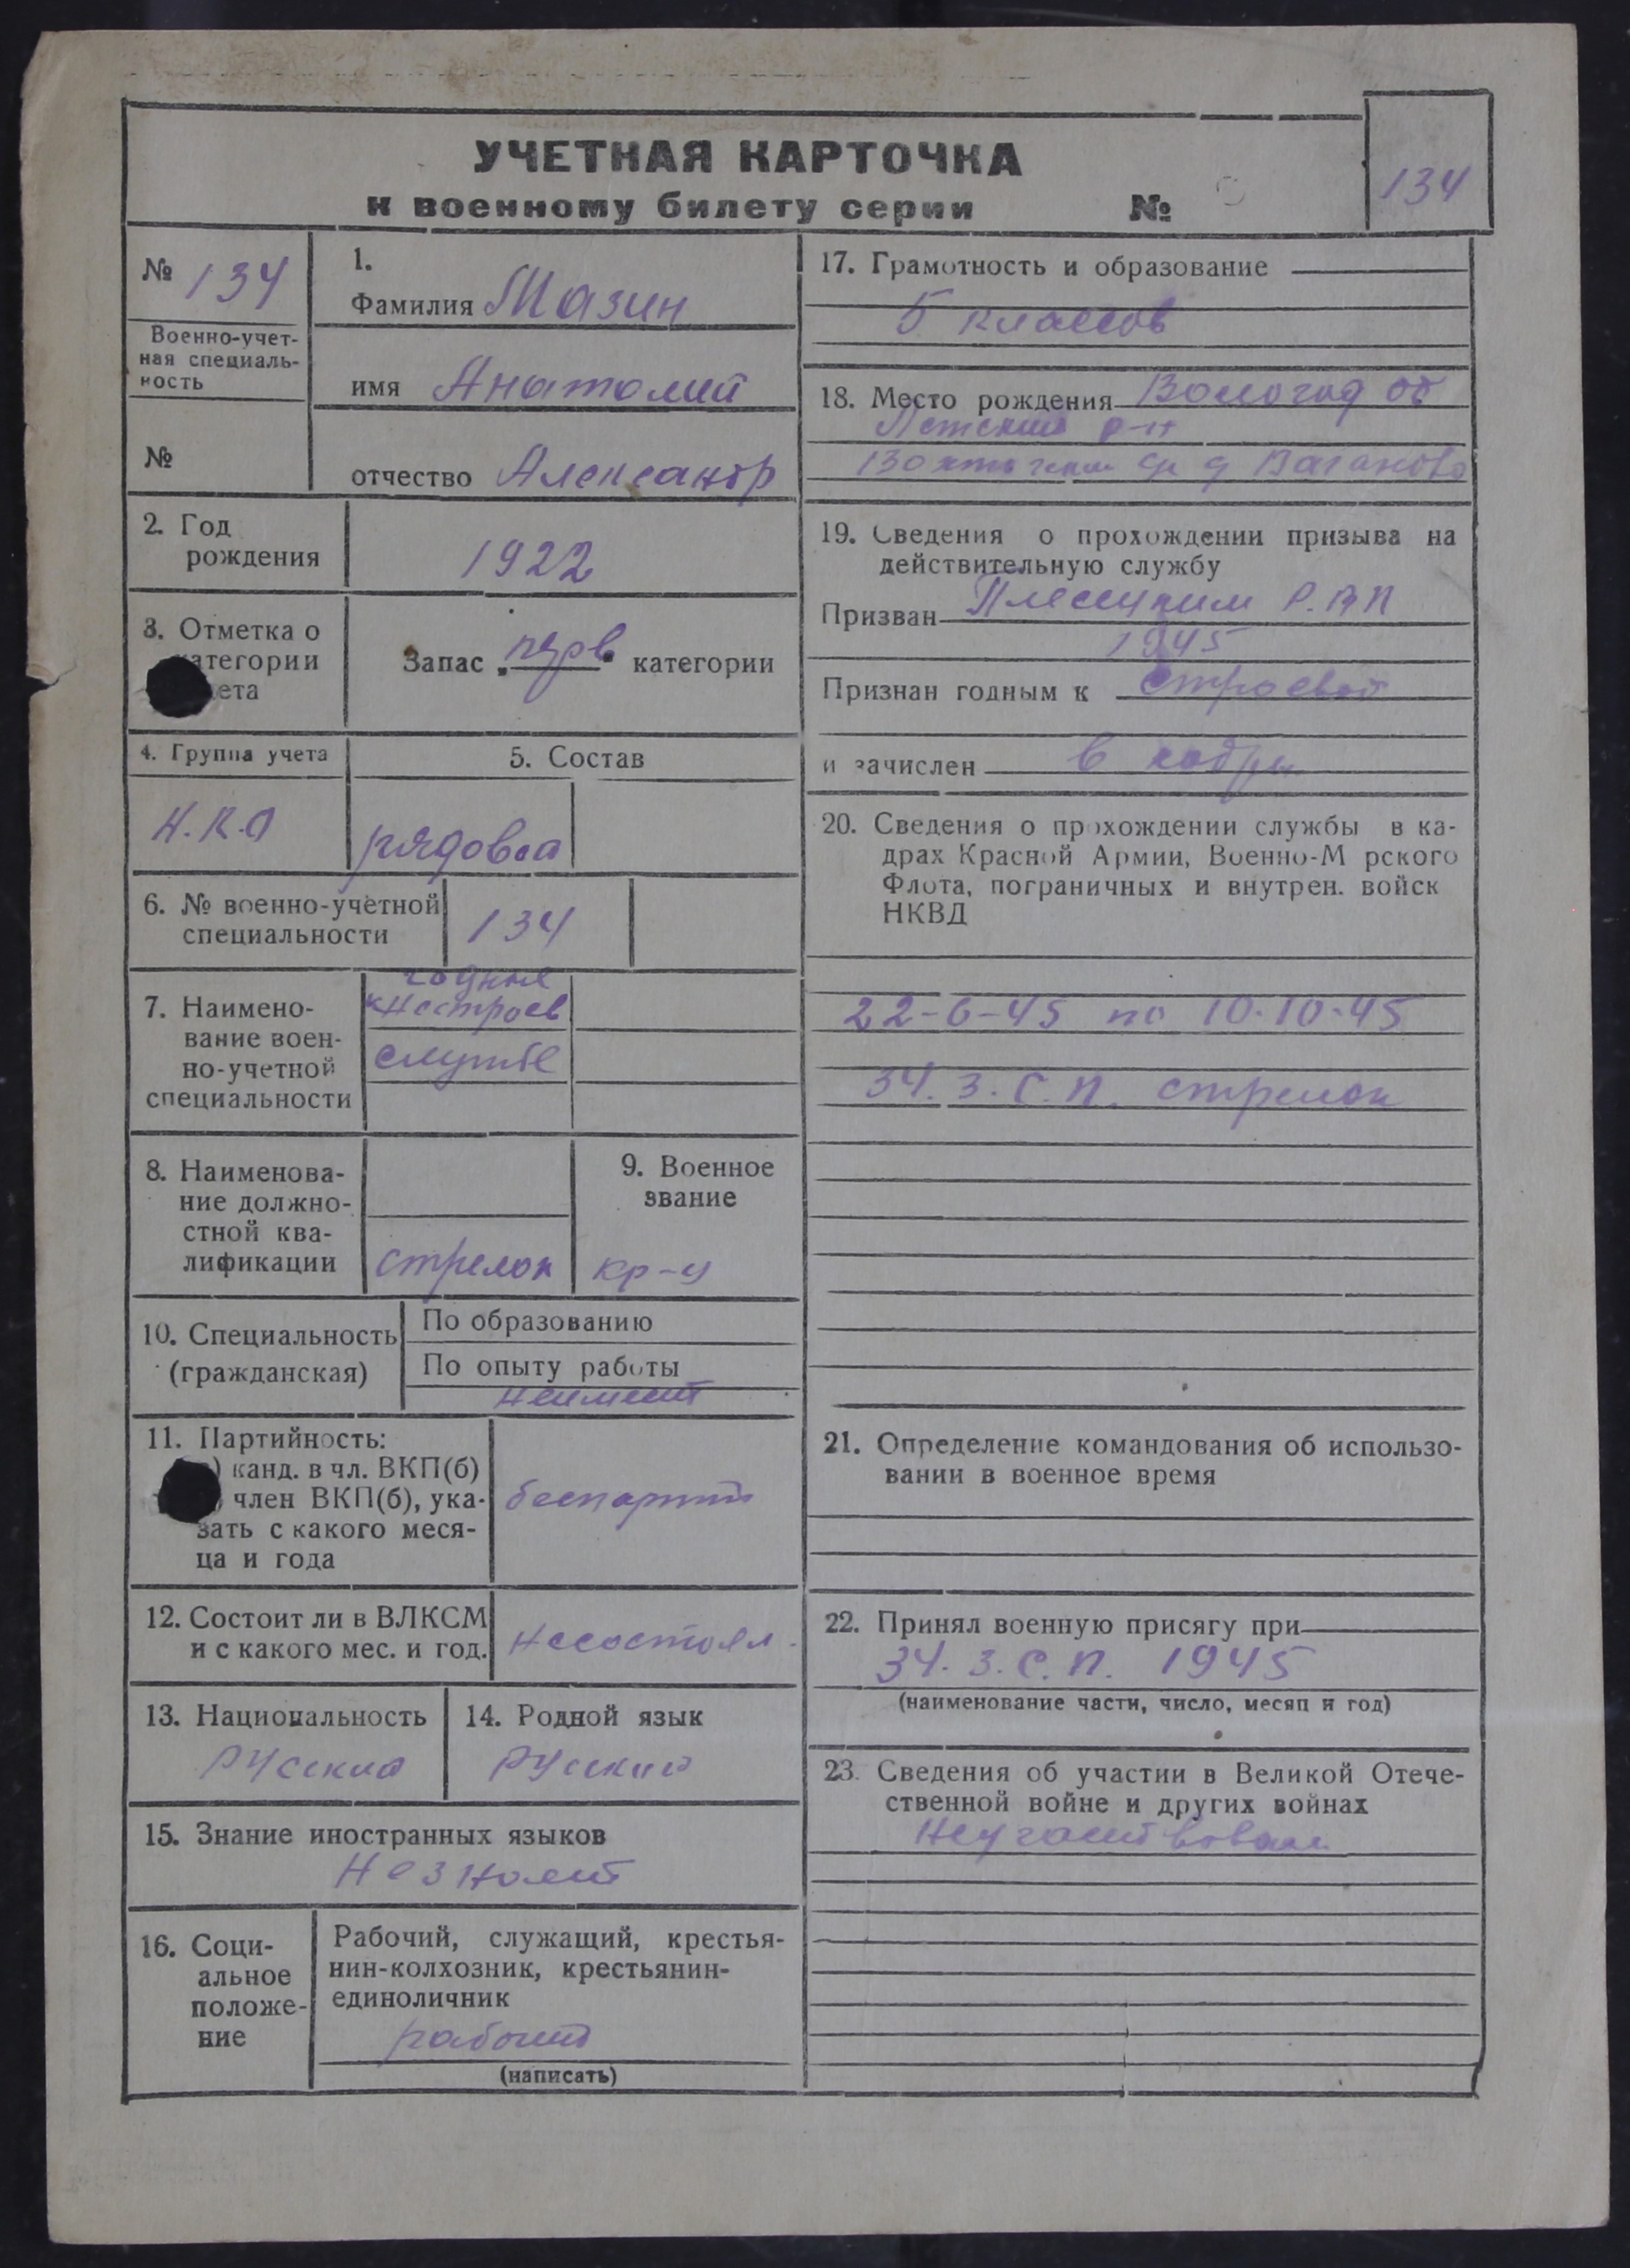 УЧЕТНАЯ КАРТОЧКА
к военному билету серии №
134
№ 134
Военно-учет-
ная специаль-
ность
№
1.
Фамилия Мазин
имя Анатолий
отчество Александр
2. Год
рождения
1922
3. Отметка о
категории
учета
Запас „перв“ категории
4. Группа учета
Н.К.О
5. Состав
рядовой
6. № военно-учетной
специальности
134
7. Наимено-
вание воен-
но-учетной
специальности
годный
к нестроев
службе
8. Наименова-
ние должно-
стной ква-
лификации
стрелок
9. Военное
звание
кр-ц
10. Специальность
(гражданская)
По образованию
По опыту работы
неимеет
11. Партийность:
) канд. в чл. ВКП(б)
) член ВКП(б), ука-
зать с какого меся-
ца и года
беспарт
12. Состоит ли в ВЛКСМ
и с какого мес. и год.
несостоял
13. Национальность
русский
14. Родной язык
русский
15. Знание иностранных языков
незнает
16. Соци-
альное
положе-
ние
Рабочий, служащий, крестья-
нин-колхозник, крестьянин-
единоличник
рабочий
(написать)
17. Грамотность и образование
5 классов
18. Место рождения Вологод об
р-н
д Ваганово
19. Сведения о прохождении призыва на
действительную службу
Призван Плесецким Р.В.К
1945
Признан годным к строевой
и зачислен в кадры
20. Сведения о прохождении службы в ка-
драх Красной Армии, Военно-М рского
Флота, пограничных и внутрен. войск
НКВД
22-6-45 по 10-10-45
34. З.С.П. стрелок
21. Определение командования об использо-
вании в военное время
22. Принял военную присягу при
34. З.С.П. 1945
(наименование части, число, месяц и год)
23. Сведения об участии в Великой Отече-
ственной войне и других войнах
Неучаствовал